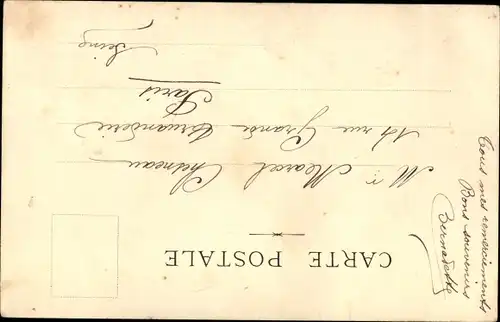 CARTE POSTALE
Mr Marcel Chesneau
14 rue Grande Truanderie
Paris
Seine
Tous mes remerciements
Bons souvenirs
Bernadette